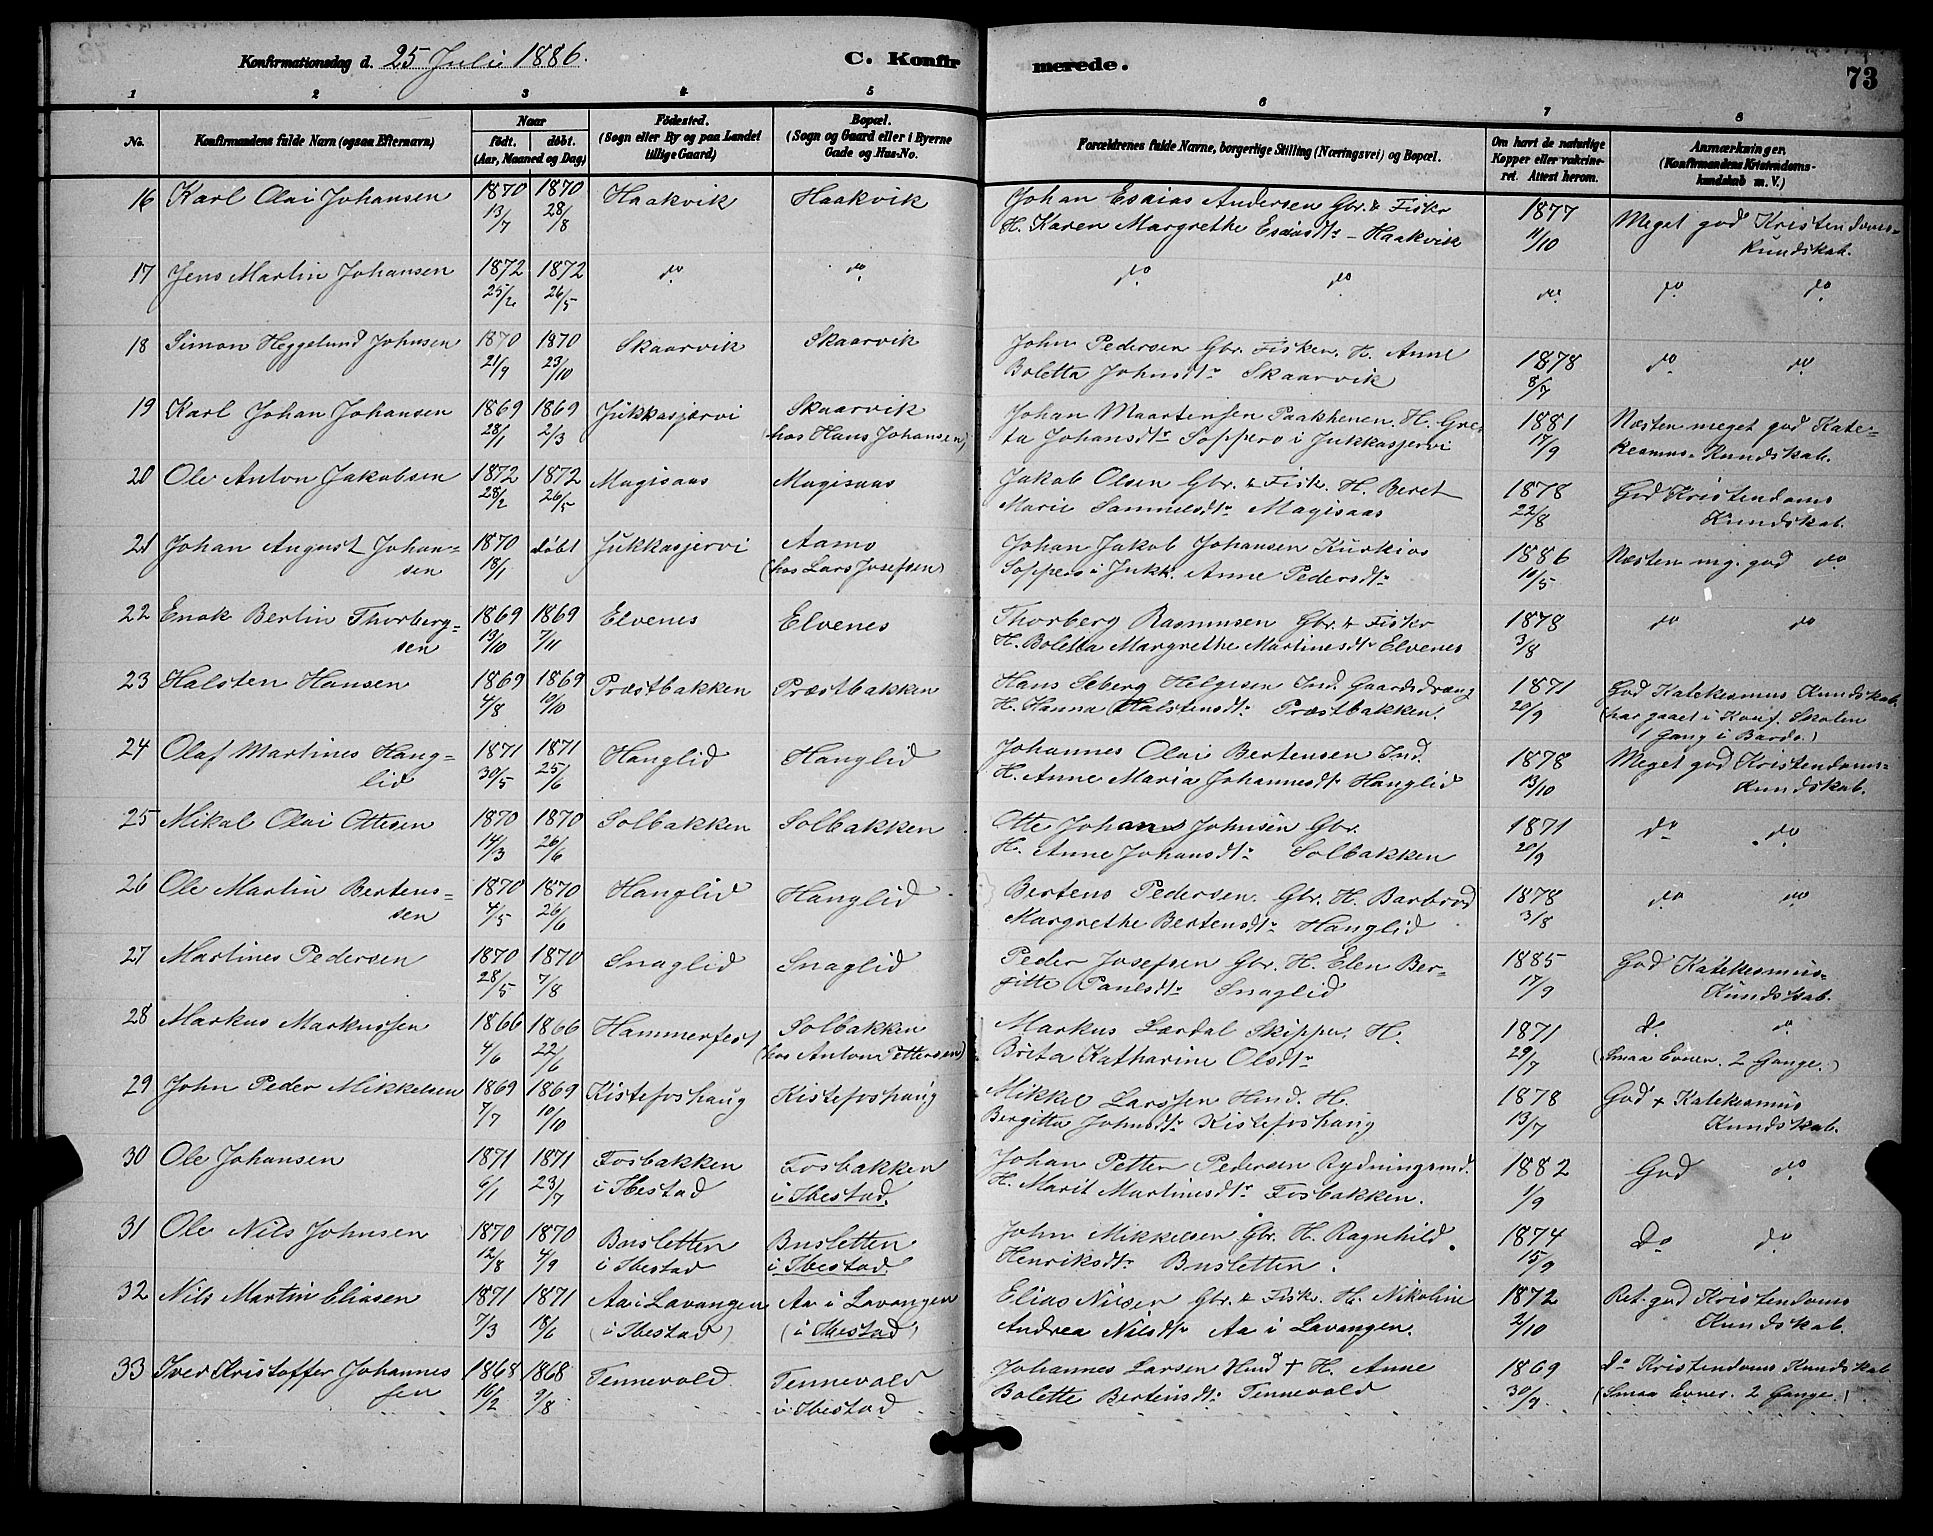 Konfirmationsdag d. 25 Juli 1886. C. Konfirmerede. 73
1 2 3 4 5 6 7 8
No. Konfirmandens fulde Navn (ogsaa Efternavn) Naar født. døbt. (Aar, Maaned og Dag) Fødested. (Sogn eller By og paa Landet tillige Gaard) Bopæl. (Sogn og Gaard eller i Byerne Gade og Hus-No. Forældrenes fulde Navne, borgerlige Stilling (Næringsvei) og Bopæl. Om havt de naturlige Kopper eller vakcineret. Attest herom. Anmærkninger, (Konfirmandens Kristendomskundskab m. V.)
16 Karl Olai Johansen 1870 1870 Haakvik Haakvik Johan Esaias Andersen Gbr. & Fisker 1877 Meget god Kristendoms-
13/7 28/8 H. Karen Margrethe Esaisdtr - Haakvik 11/10 Kundskab.
17 Jens Martin Johansen 1872 1872 do do do do do do do
25/2 26/5
18 Simon Heggelund Johnsen 1870 1870 Skaarvik Skaarvik John Pedersen Gbr. Fisker. H. Anne 1878 do do
21/9 23/10 Boletta Johnsdtr Skaarvik 8/7
19 Karl Johan Johansen 1869 1869 Jukkasjærvi Skaarvik Johan Maartensen Paakhenen. H. Gre- 1881 Næsten meget god Kate-
28/1 2/3 (hos Hans Johansen) ta Johansdtr Soppero i Jukkasjervi 17/9 kesmus-Kundskab.
20 Ole Anton Jakobsen 1872 1872 Magisaas Magisaas Jakob Olsen Gbr. & Fisk. H. Beret 1878 God Kristendoms
28/2 26/5 Marie Samuelsdtr Magisaas 22/8 Kundskab.
21 Johan August Johan- 1870 døbt Jukkasjervi Aamo Johan Jakob Johansen Kurkios 1886 Næsten mg. god do
sen 18/1 (hos Lars Josefsen) Soppero i Jukk. Anne Pedersdtr 10/5
22 Enok Bertin Thorberg- 1869 1869 Elvenes Elvenes Thorberg Rasmusen Gbr. & Fisker 1878 do do
sen 13/10 7/11 H. Boletta Margrethe Martinesdtr Elvenes 3/8
23 Halsten Hansen 1869 1869 Præstbakken Præstbakken Hans Seberg Helgesen Ind. Gaardsdræng 1871 God Katekesmus Kundskab.
4/8 10/10 H. Hanna Halstensdtr Præstbakken. 20/9 (har gaaet i Konf. Skolen
1 Gang i Bardo.)
24 Olaf Martines Hang- 1871 1871 Hanglid Hanglid Johannes Olai Bertensen Ind. 1878 Meget god Kristendoms-
lid 30/5 25/6 H. Anne Maria Johannesdtr Hanglid 13/10 Kundskab.
25 Mikal Olai Ottesen 1870 1870 Solbakken Solbakken Otte Johanes Johnsen Gbr. 1871 do do
14/3 26/6 H. Anne Johansdtr Solbakken 20/9
26 Ole Martin Bertens- 1870 1870 Hanglid Hanglid Bertens Pedersen. Gbr. H. Barbrod 1878 do do
sen 4/5 26/6 Margrethe Bertensdtr Hanglid 3/8
27 Martines Pedersen 1870 1870 Snaglid Snaglid Peder Josefsen Gbr. H. Elen Ber- 1885 God Katekesmus-
28/5 7/8 gitte Paulsdtr Snaglid 17/9 Kundskab.
28 Markus Markussen 1866 1866 Hammerfest Solbakken Markus Lærdal Skipper. H. 1871 do do
4/6 22/6 (hos Anton Pettersen) Brita Katharine Olsdtr 29/7 (Smaa Evner. 2 Gange.)
29 John Peder Mikkelsen 1869 1869 Kistefoshaug Kistefoshaug Mikkel Larssen Hmd. H. 1878 God + Katekesmus
7/7 10/10 Bergitta Johnsdtr Kistefoshaug 13/7 Kundskab.
30 Ole Johansen 1871 1871 Fosbakken Fosbakken Johan Petter Pedersen Rydningsmd. 1882 God do
6/1 23/7 i Ibestad i Ibestad. H. Marit Martinesdtr Fosbakken. 1/9
31 Ole Nils Johnsen 1870 1870 Busletten Busletten John Mikkelsen Gbr. H. Ragnhild 1874 do do
12/8 4/9 i Ibestad i Ibestad. Henriksdtr Busletten. 15/9
32 Nils Martin Eliasen 1871 1871 Aa i Lavangen Aa i Lavangen Elias Nilsen Gbr. & Fisk. H. Nikoline 1872 Ret. god Kristendoms
7/3 18/6 (i Ibestad) (i Ibestad) Andrea Nilsdtr Aa i Lavangen. 2/10 Kundskab.
33 Iver Kristoffer Johannes 1868 1868 Tennevold Tennevold Johannes Larsen Hmd + H. Anne 1869 do Kristendoms Kundskab
sen 16/2 9/8 i Ibestad Bolette Bertensdtr Tennevold 30/9 (Smaa Evner. 2 Gange.)